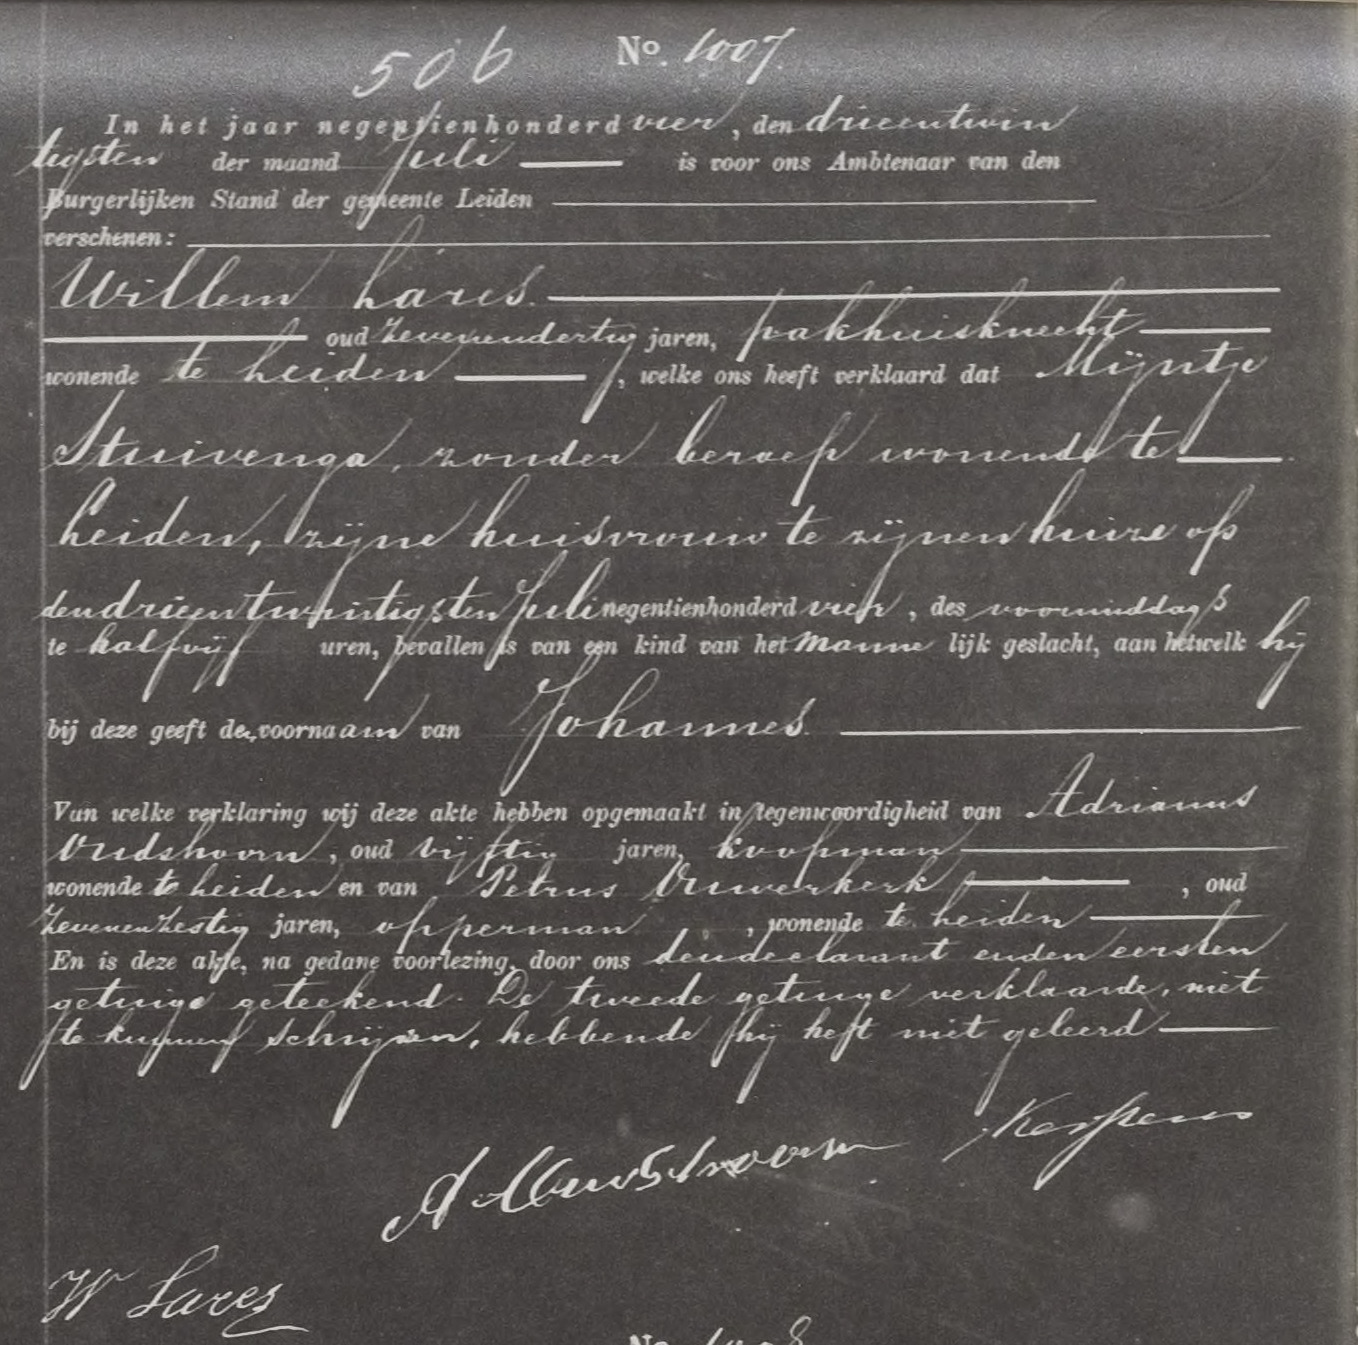 506 No. 1007.
In het jaar negentienhonderd vier, den drieentwin
tigsten der maand Juli is voor ons Ambtenaar van den
Burgerlijken Stand der gemeente Leiden
verschenen:
Willem Lares.
oud Zevenendertig jaren, pakhuisknecht
wonende te Leiden, welke ons heeft verklaard dat Mijntje
Stuivenga, zonder beroep wonende te
Leiden, zijne huisvrouw te zijnen huize op
den drieentwintigsten Juli negentienhonderd vier, des voormiddags
te half vijf uren, bevallen is van een kind van het manne lijk geslacht, aan hetwelk hij
bij deze geeft de voornaam van Johannes.
Van welke verklaring wij deze akte hebben opgemaakt in tegenwoordigheid van Adrianus
Oudshoorn, oud vijftig jaren, koopman
wonende te Leiden en van Petrus Ouwerkerk, oud
Zevenenzestig jaren, opperman, wonende te Leiden
En is deze akte, na gedane voorlezing, door ons den declarant en den eersten
getuige geteekend. De tweede getuige verklaarde, niet
te kunnen schrijven, hebbende hij heft niet geleerd
A. Oudshoorn
W Lares
No. 1008